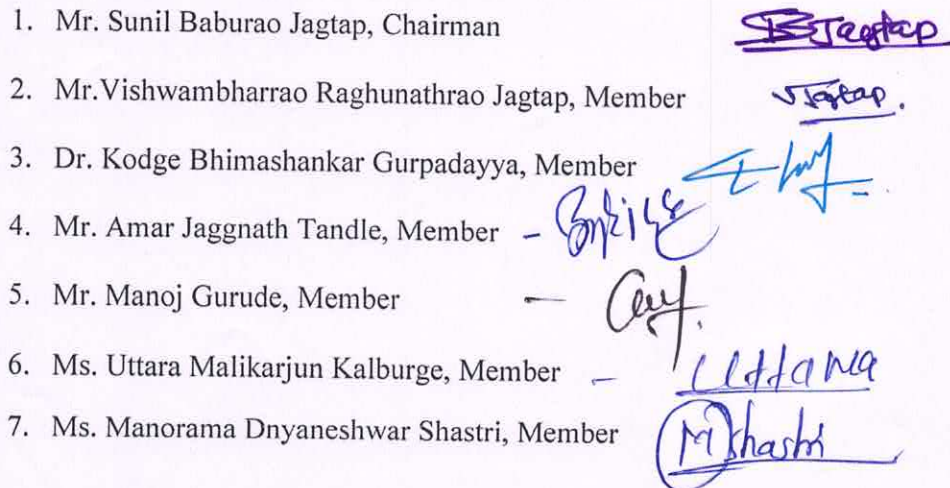 1. Mr. Sunil Baburao Jagtap, Chairman SBJagtap
2. Mr.Vishwambharrao Raghunathrao Jagtap, Member VJagtap.
3. Dr. Kodge Bhimashankar Gurpadayya, Member
4. Mr. Amar Jaggnath Tandle, Member -
5. Mr. Manoj Gurude, Member -
6. Ms. Uttara Malikarjun Kalburge, Member - Uttara
7. Ms. Manorama Dnyaneshwar Shastri, Member MShastri